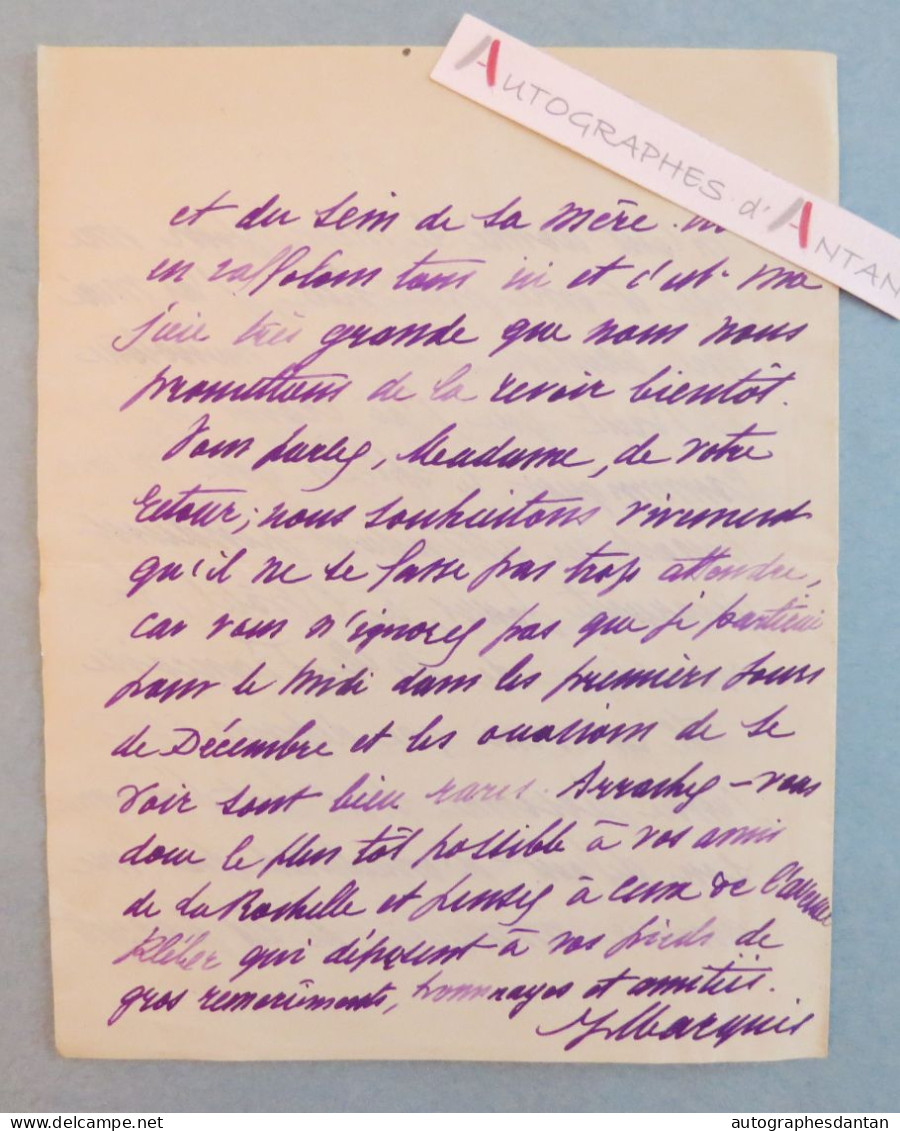 AUTOGRAPHES d'ANTAN
et du sein de sa mère.
en raffolons tous ici et c'est ma
joie très grande que nous nous
promettons de la revoir bientôt.
Vous parlez, Madame, de votre
retour; nous souhaitons vivement
qu'il ne se fasse pas trop attendre,
car vous n'ignorez pas que je partirai
pour le Midi dans les premiers jours
de Décembre et les occasions de se
voir sont bien rares. Arrachez-vous
donc le plus tôt possible à vos amis
de La Rochelle et pensez à ceux de l'avenue
Kléber qui déposent à vos pieds de
gros remerciements, hommages et amitiés.
Marquis
autographesdantan